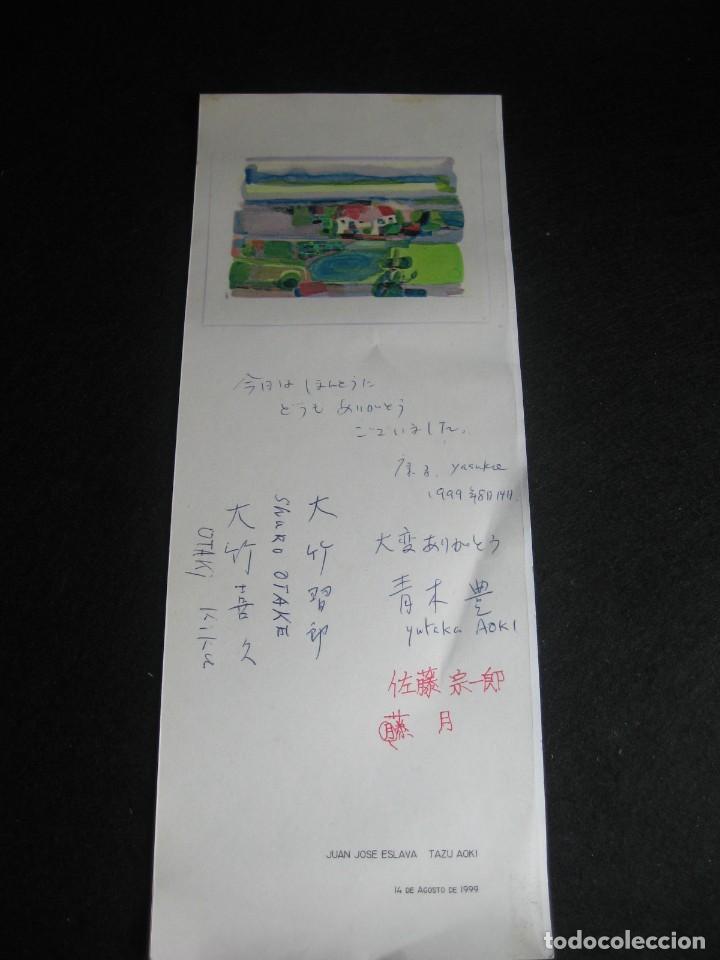 今日は ほんとうに
どうも ありがとう
ございました。
Yasukoe
1999年8月14日
大変ありがとう
青木 豊
yutaka AOKI
大竹習郎
ShuRO OTAKE
大竹喜久
OTAKI Kiku
佐藤 宗一郎
藤 月
JUAN JOSE ESLAVA TAZU AOKI
14 DE AGOSTO DE 1999
todocoleccion
todocoleccion.net